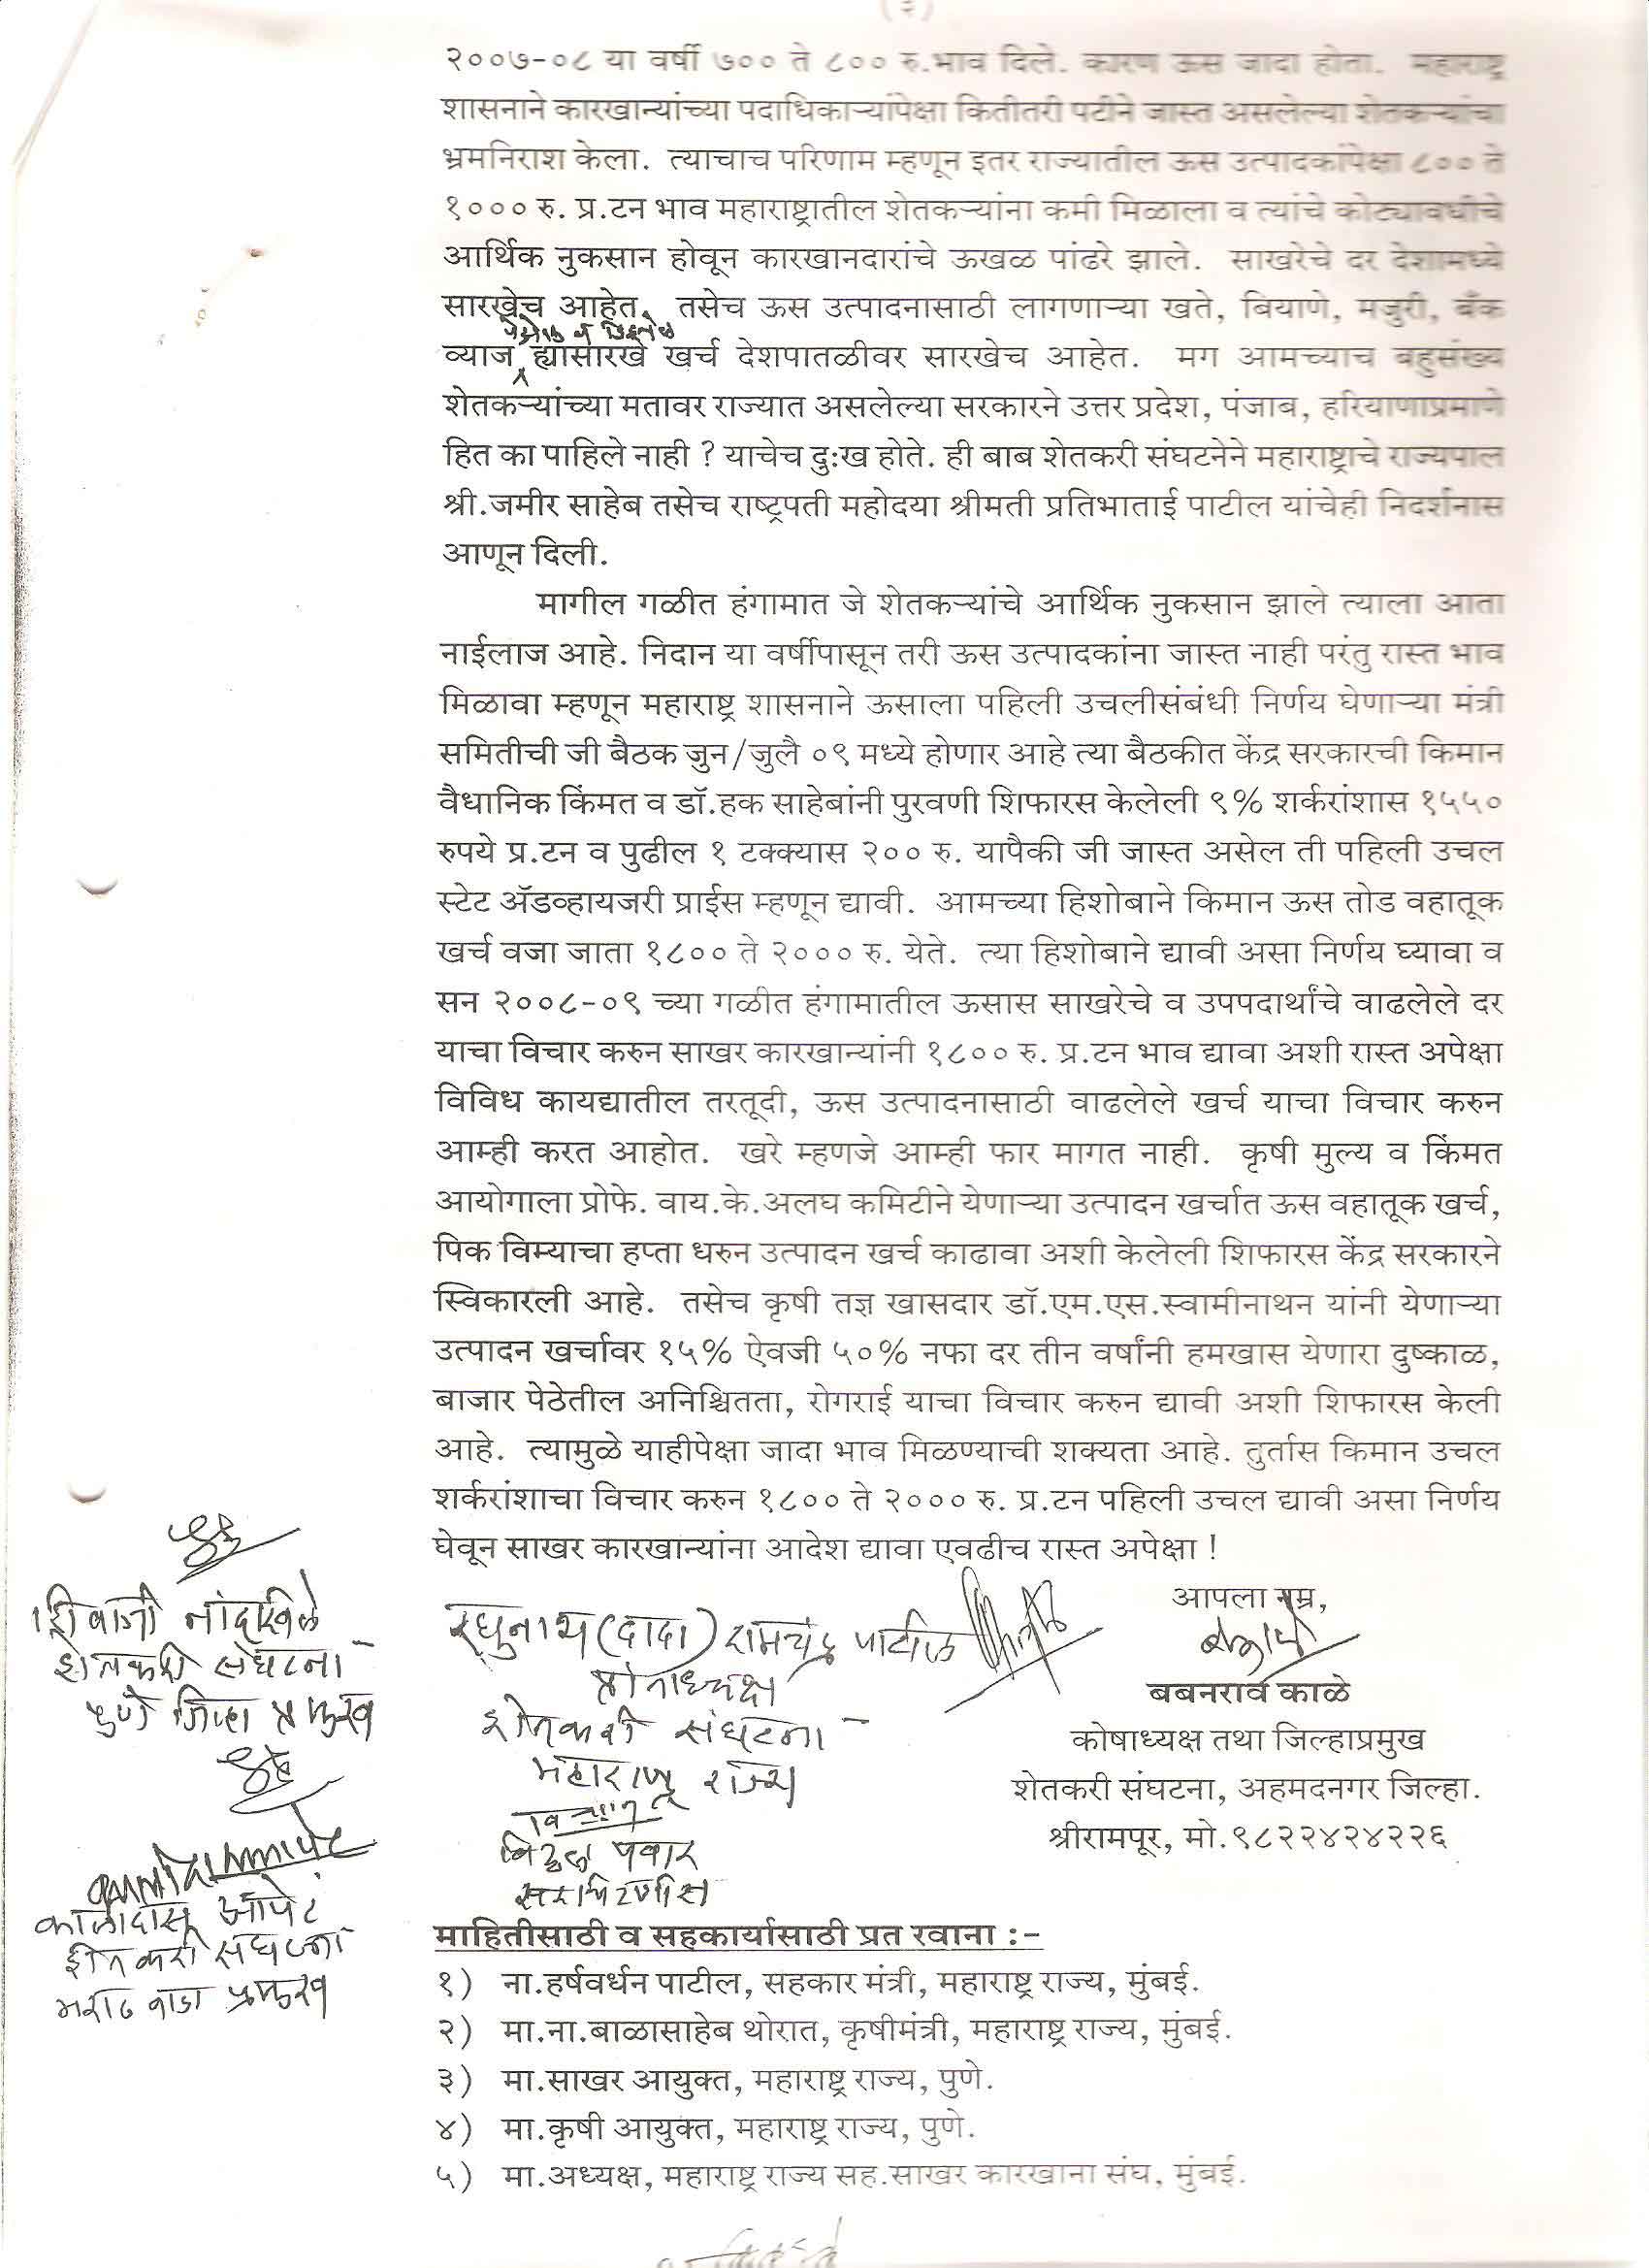 (२)
२००७-०८ या वर्षी ७०० ते ८०० रु.भाव दिले. कारण ऊस जादा होता. महाराष्ट्र
शासनाने कारखान्यांच्या पदाधिकाऱ्यांपेक्षा कितीतरी पटीने जास्त असलेल्या शेतकऱ्यांचा
भ्रमनिराश केला. त्याचाच परिणाम म्हणून इतर राज्यातील ऊस उत्पादकांपेक्षा ८०० ते
१००० रु. प्र.टन भाव महाराष्ट्रातील शेतकऱ्यांना कमी मिळाला व त्यांचे कोट्यावधीचे
आर्थिक नुकसान होवून कारखानदारांचे ऊखळ पांढरे झाले. साखरेचे दर देशामध्ये
सारखेच आहेत. तसेच ऊस उत्पादनासाठी लागणाऱ्या खते, बियाणे, मजुरी, बँक
व्याज ह्यासारखे खर्च देशपातळीवर सारखेच आहेत. मग आमच्याच बहुसंख्य
शेतकऱ्यांच्या मतावर राज्यात असलेल्या सरकारने उत्तर प्रदेश, पंजाब, हरियाणाप्रमाणे
हित का पाहिले नाही ? याचेच दुःख होते. ही बाब शेतकरी संघटनेने महाराष्ट्राचे राज्यपाल
श्री.जमीर साहेब तसेच राष्ट्रपती महोदया श्रीमती प्रतिभाताई पाटील यांचेही निदर्शनास
आणून दिली.
मागील गळीत हंगामात जे शेतकऱ्यांचे आर्थिक नुकसान झाले त्याला आता
नाईलाज आहे. निदान या वर्षीपासून तरी ऊस उत्पादकांना जास्त नाही परंतु रास्त भाव
मिळावा म्हणून महाराष्ट्र शासनाने ऊसाला पहिली उचलीसंबंधी निर्णय घेणाऱ्या मंत्री
समितीची जी बैठक जुन/जुलै ०९ मध्ये होणार आहे त्या बैठकीत केंद्र सरकारची किमान
वैधानिक किंमत व डॉ.हक साहेबांनी पुरवणी शिफारस केलेली ९% शर्करांशास १५५०
रुपये प्र.टन व पुढील १ टक्क्यास २०० रु. यापैकी जी जास्त असेल ती पहिली उचल
स्टेट ॲडव्हायजरी प्राईस म्हणून द्यावी. आमच्या हिशोबाने किमान ऊस तोड वहातूक
खर्च वजा जाता १८०० ते २००० रु. येते. त्या हिशोबाने द्यावी असा निर्णय घ्यावा व
सन २००८-०९ च्या गळीत हंगामातील ऊसास साखरेचे व उपपदार्थांचे वाढलेले दर
याचा विचार करुन साखर कारखान्यांनी १८०० रु. प्र.टन भाव द्यावा अशी रास्त अपेक्षा
विविध कायद्यातील तरतूदी, ऊस उत्पादनासाठी वाढलेले खर्च याचा विचार करुन
आम्ही करत आहोत. खरे म्हणजे आम्ही फार मागत नाही. कृषी मुल्य व किंमत
आयोगाला प्रोफे. वाय.के.अलघ कमिटीने येणाऱ्या उत्पादन खर्चात ऊस वहातूक खर्च,
पिक विम्याचा हप्ता धरुन उत्पादन खर्च काढावा अशी केलेली शिफारस केंद्र सरकारने
स्विकारली आहे. तसेच कृषी तज्ञ खासदार डॉ.एम.एस.स्वामीनाथन यांनी येणाऱ्या
उत्पादन खर्चावर १५% ऐवजी ५०% नफा दर तीन वर्षांनी हमखास येणारा दुष्काळ,
बाजार पेठेतील अनिश्चितता, रोगराई याचा विचार करुन द्यावी अशी शिफारस केली
आहे. त्यामुळे याहीपेक्षा जादा भाव मिळण्याची शक्यता आहे. तुर्तास किमान उचल
शर्करांशाचा विचार करुन १८०० ते २००० रु. प्र.टन पहिली उचल द्यावी असा निर्णय
घेवून साखर कारखान्यांना आदेश द्यावा एवढीच रास्त अपेक्षा !
आपला नम्र,
बबनराव काळे
कोषाध्यक्ष तथा जिल्हाप्रमुख
शेतकरी संघटना, अहमदनगर जिल्हा.
श्रीरामपूर, मो.९८२२४२४२२६
रघुनाथ (दादा) रामचंद्र पाटील
प्रांताध्यक्ष
शेतकरी संघटना
महाराष्ट्र राज्य
विठ्ठल पवार
सरचिटणीस
शिवाजी नांदखिले
शेतकरी संघटना
पुणे जिल्हा प्रमुख
कालीदास आपेट
शेतकरी संघटना
मराठवाडा प्रमुख
माहितीसाठी व सहकार्यासाठी प्रत रवाना :-
१) ना.हर्षवर्धन पाटील, सहकार मंत्री, महाराष्ट्र राज्य, मुंबई.
२) मा.ना.बाळासाहेब थोरात, कृषीमंत्री, महाराष्ट्र राज्य, मुंबई.
३) मा.साखर आयुक्त, महाराष्ट्र राज्य, पुणे.
४) मा.कृषी आयुक्त, महाराष्ट्र राज्य, पुणे.
५) मा.अध्यक्ष, महाराष्ट्र राज्य सह.साखर कारखाना संघ, मुंबई.